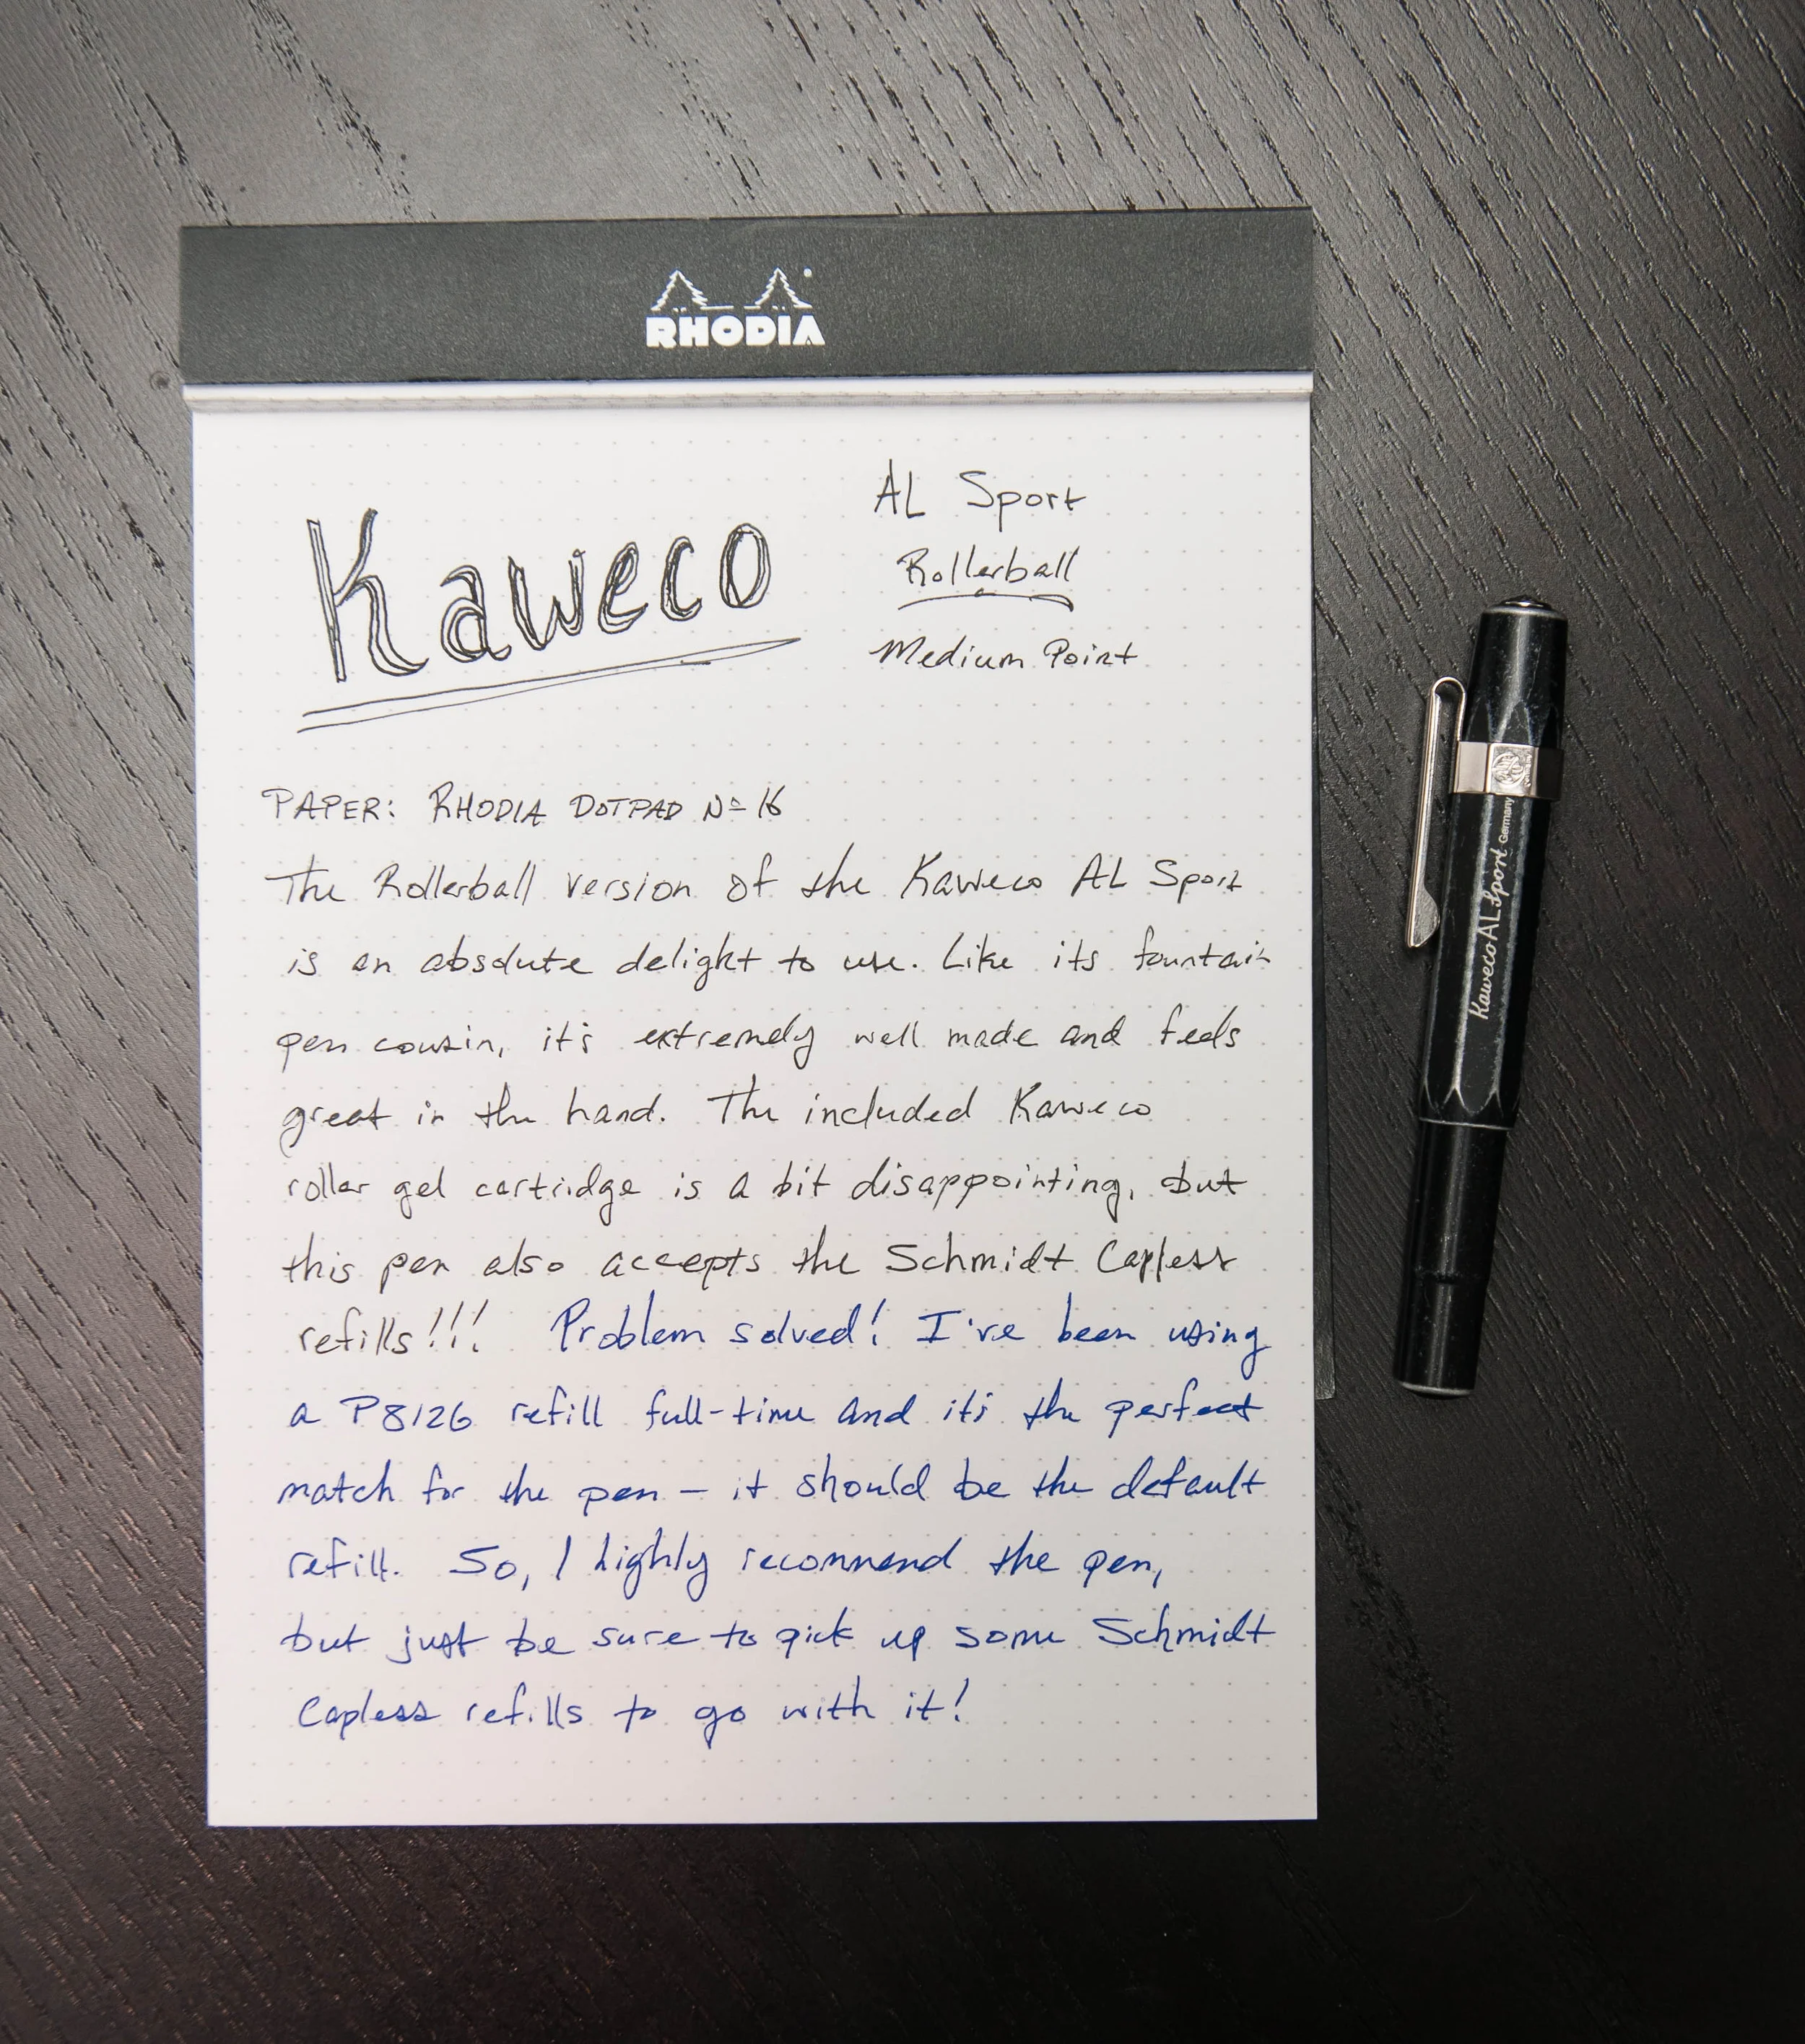 RHODIA
Kaweco
AL Sport
Rollerball
Medium Point
PAPER: RHODIA DOTPAD Nº 16
The Rollerball version of the Kaweco AL Sport
is an absolute delight to use. Like its fountain
pen cousin, it's extremely well made and feels
great in the hand. The included Kaweco
roller gel cartridge is a bit disappointing, but
this pen also accepts the Schmidt Capless
refills!!! Problem solved! I've been using
a P8126 refill full-time and it's the perfect
match for the pen – it should be the default
refill. So, I highly recommend the pen,
but just be sure to pick up some Schmidt
Capless refills to go with it!
Kaweco AL Sport Germany